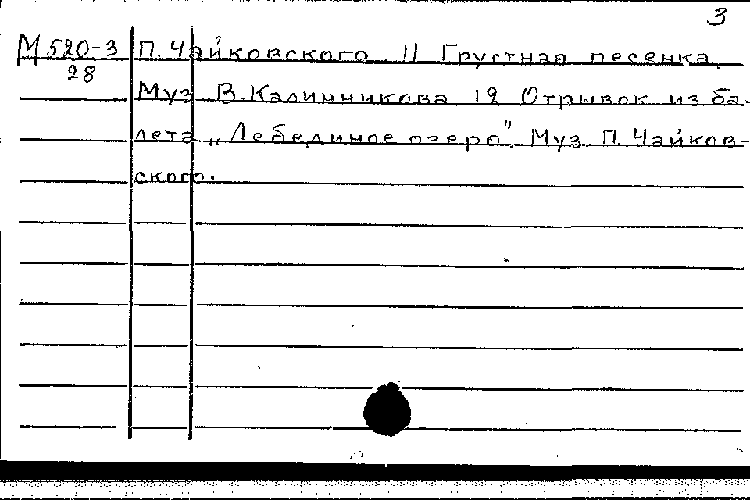 3
М 520-3 П. Чайковского 11 Грустная песенка.
28
Муз В. Калинникова 12 Отрывок из ба-
лета „Лебединое озеро". Муз. П. Чайков-
ского.